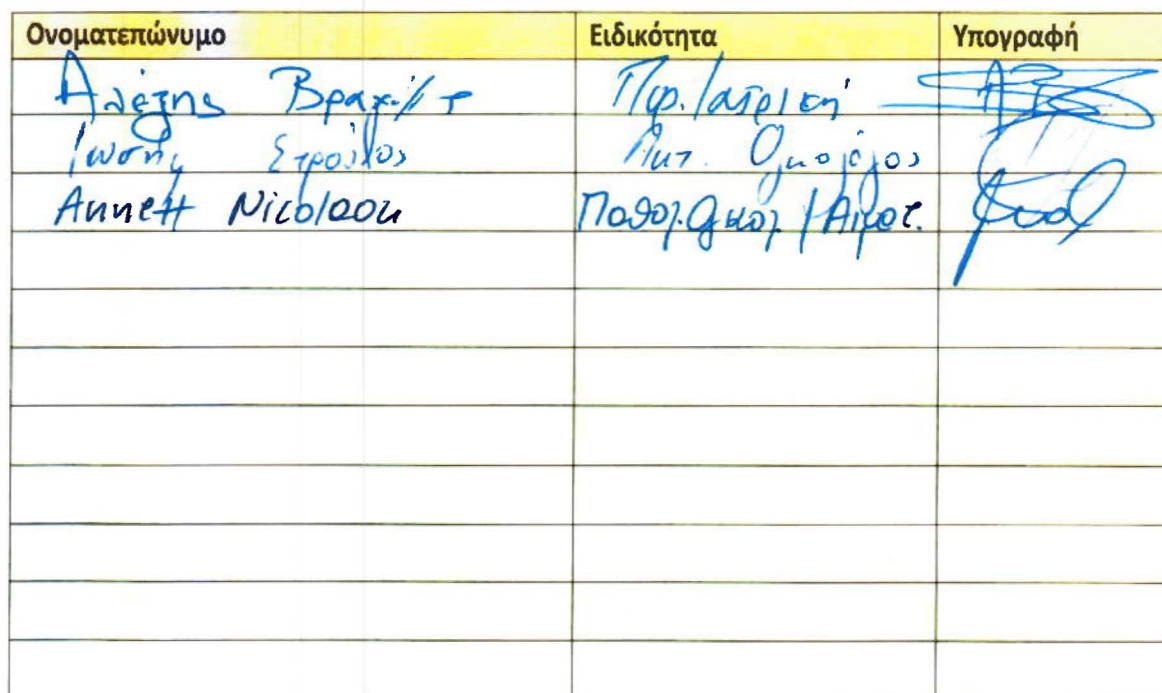 Ονοματεπώνυμο Ειδικότητα Υπογραφή
Αλέξης
Ιωσήφ Στρούθος Ακτ. Ογκολόγος
Annett Nicolaou Παθολ. Ογκολ. / Αιματ.